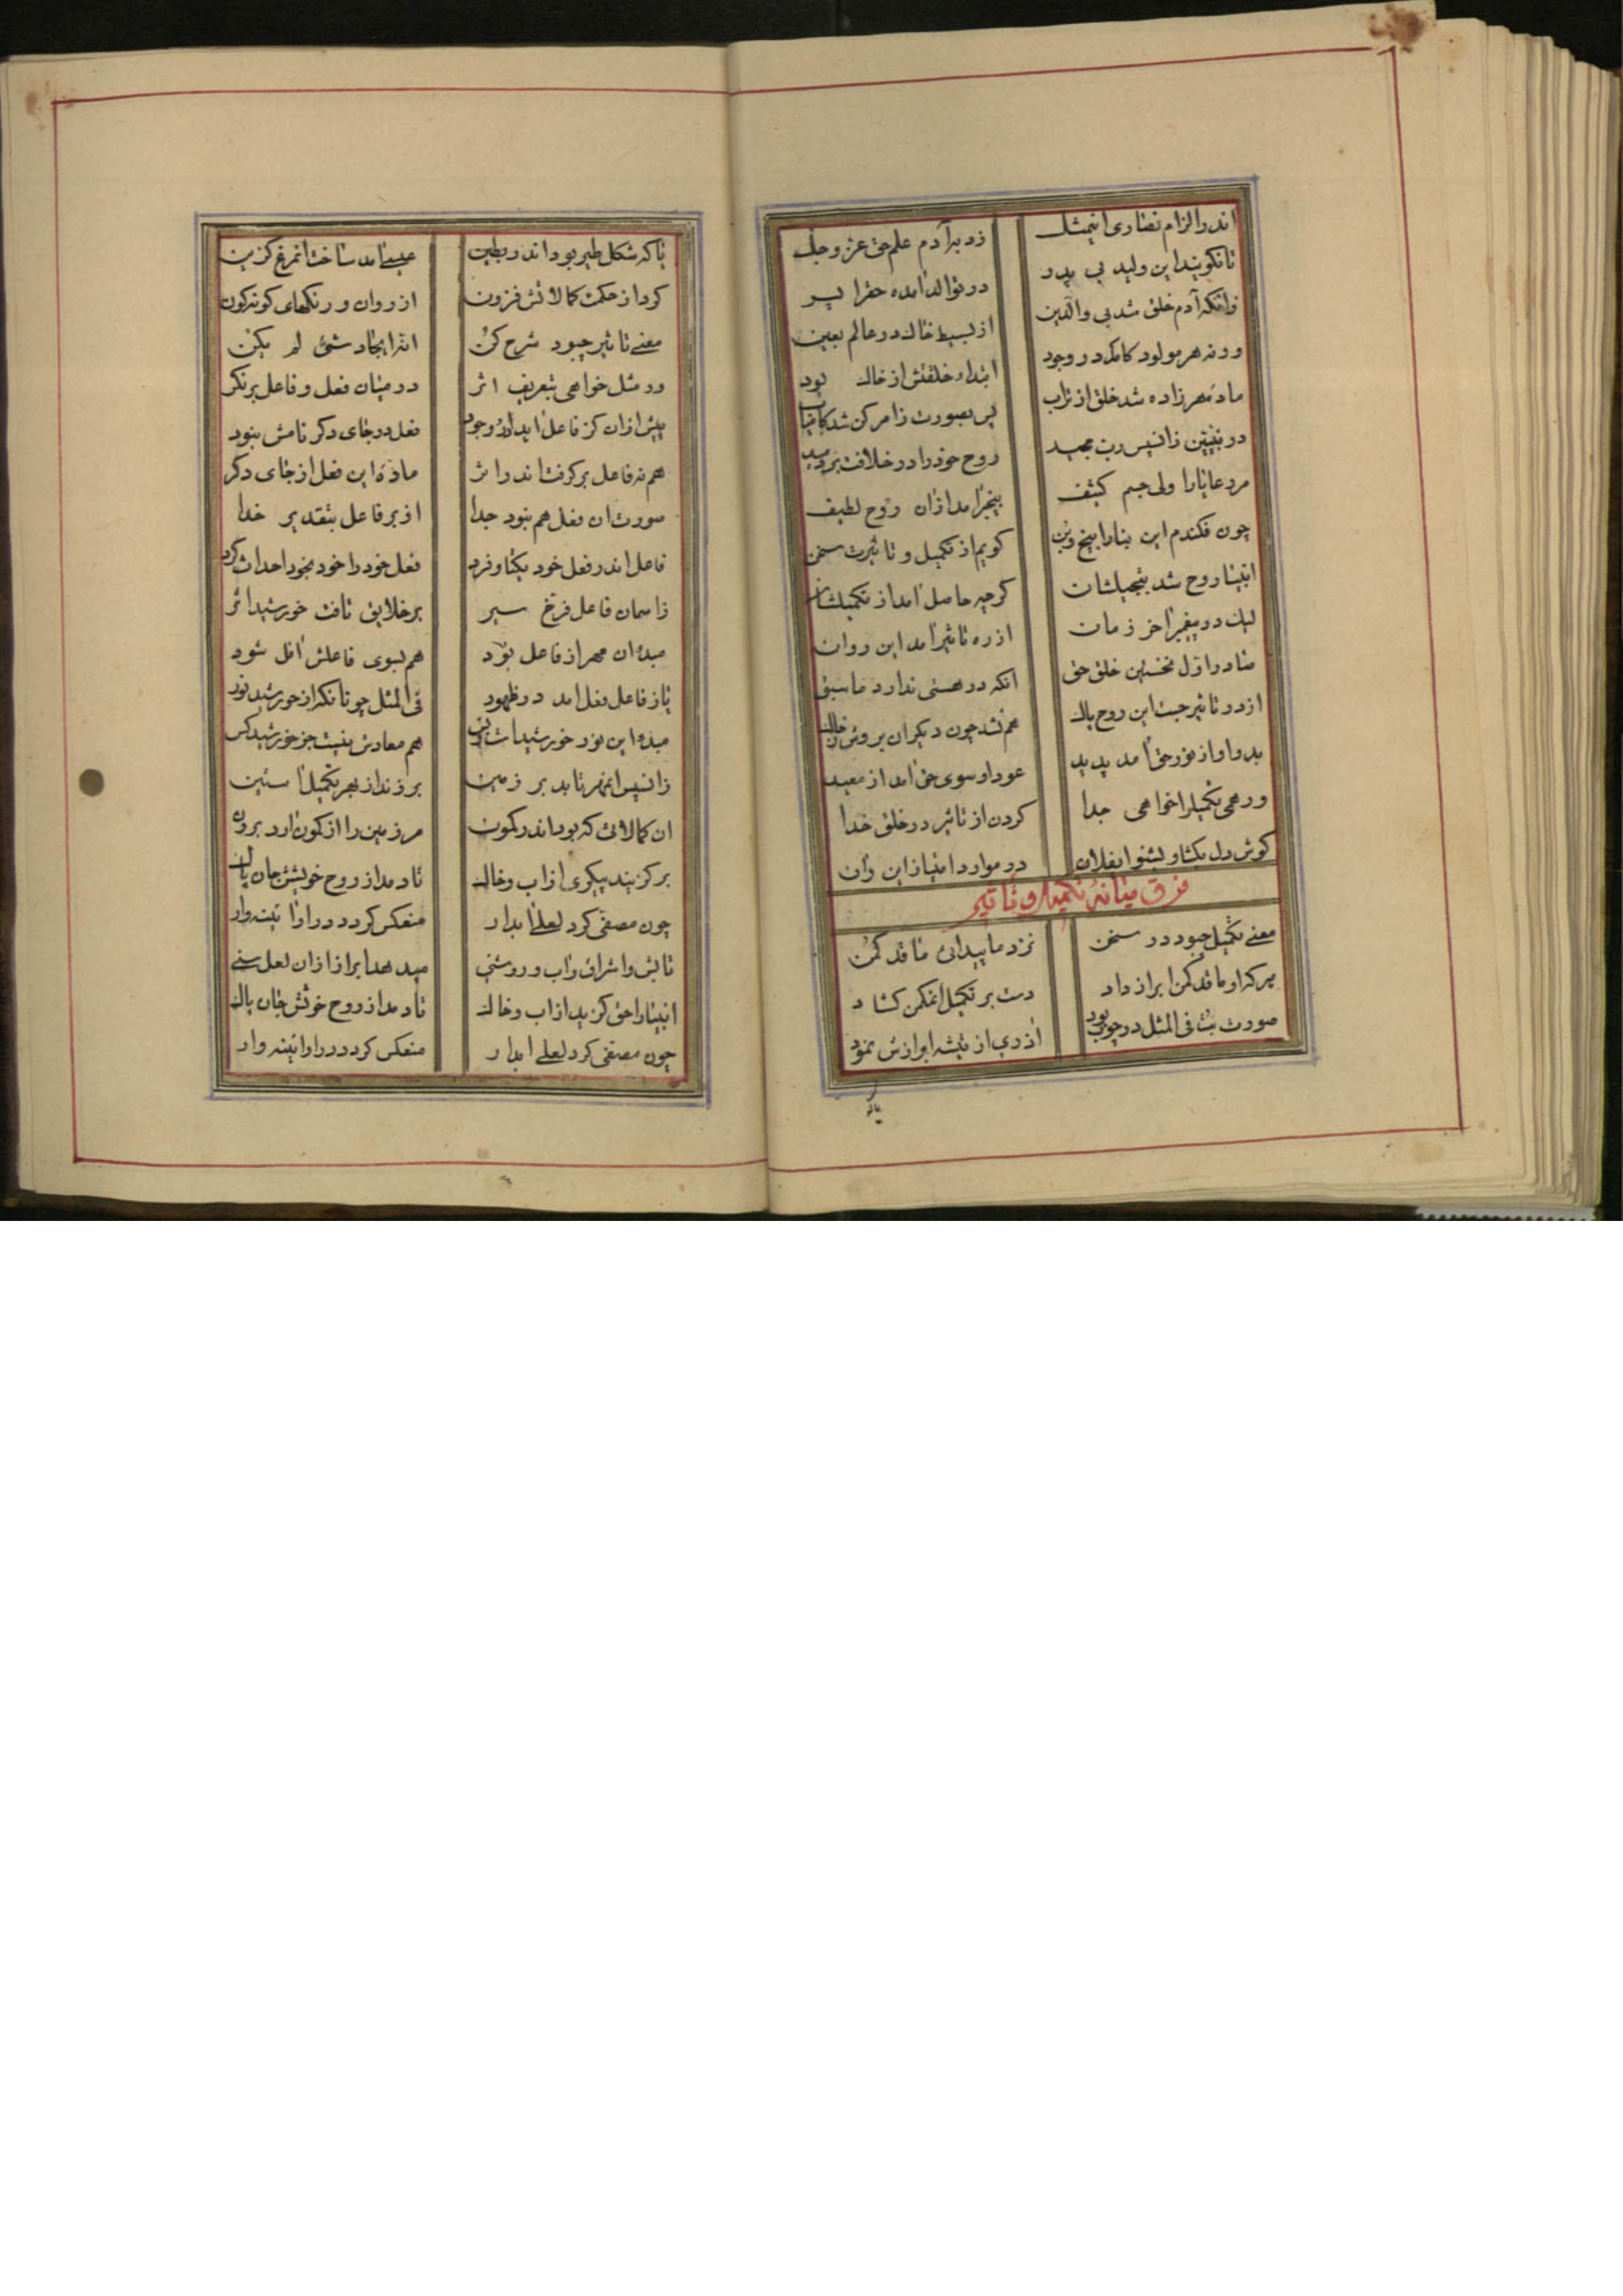 اندر الزام نصاری اینمثل زد بر آدم علم حق عز و جل
تا نگویند این ولید بی پدر در توالد آمده حق را پسر
زانکه آدم خلق شد بی والدین از بسیط خاک در عالم بعین
ور نه هر مولود کامد در وجود ابتداء خلقتش از خاک بود
ماده هر زاده شد خلق از تراب پس بصورت ز امر کن شد کامیاب
در نبیین زانپس رب مجید روح خود را در خلافت بر دمید
مرد عایانرا ولی جسم کثیف بیخبر آمد ازان روح لطیف
چون فکندم این بنا را بیخ و بن گویم از تکمیل و تاثیرت سخن
انبیا روح شد بتجیلشان گرچه حاصل آمد از تکمیلشان
لیک در پیغمبر آخر زمان از ره تاثیر آمد این روان
صادر اول نخستین خلق حق آنکه در هستی ندارد ماسبق
از در تاثیر جست این روح پاک هم نشد چون دیگران بروی خاک
بدو او از نور حق آمد پدید عود او سوی حق آمد از معید
ور همی تکمیل را خواهی جدا کردن از تاثیر در خلق خدا
گوش دل بگشا و بشنو ایفلان در موارد امتیاز این و آن
فرق میانهٔ تکمیل و تاثیر
معنی تکمیل چبود در سخن نزد ما پیدائی ما قد کمن
هر که او ما قد کمن ابراز داد دست بر تکمیل آنمکمن گشاد
صورت بت فی المثل در چوب بود آذری از تیشه ابرازش نمود
یا که
یا که شکل طیر بود اندر بطین عیسی آمد ساخت آنمرغ گزین
کرد از حکمت کمالاتش فزون از روان و رنگهای گونه گون
معنی تاثیر چبود شرح کن انه ایجاد شئ لم یکن
ور مثل خواهی بتعریف اثر در میان فعل و فاعل بر نگر
پیش ازان کز فاعل آید در وجود فعل در جای دگر نامش نبود
هم نه فاعل بر گرفت اندر اثر ماده این فعل از جای دگر
صورت ان فعل هم نبود جدا از بر فاعل بتقدیر خدا
فاعل اندر فعل خود یکتا و فرد فعل خود را خود بخود احداث کرد
ز اسمان فاعل فرخ سیر بر خلایق تافت خورشید اثر
مبدء ان مهر از فاعل بود هم بسوی فاعلش آفل شود
باز فاعل فعل امد در ظهور فی المثل چونانکه از خورشید نور
مبدء این نور خورشیدست و بس هم معادش نیست جز خورشید کس
زانپس انمهر تابد بر زمین بر زند از بهر تکمیل آستین
ان کمالاتی که بود اندر کمون مر زمین را از کمون آرد برون
بر گزیند پیکری از اب و خاک تا دمد از روح خویشش جان پاک
چون مصفی کرد لعلی ابدار منعکس گردد در او ائینه وار
تابش و اشراق و اب و روشنی میدهد ابراز ازان لعل سنی
انبیا را حق گزید از اب و خاک تا دمد از روح خوشش جان پاک
چون مصفی کرد لعلی ابدار منعکس گردد در او ائینه وار